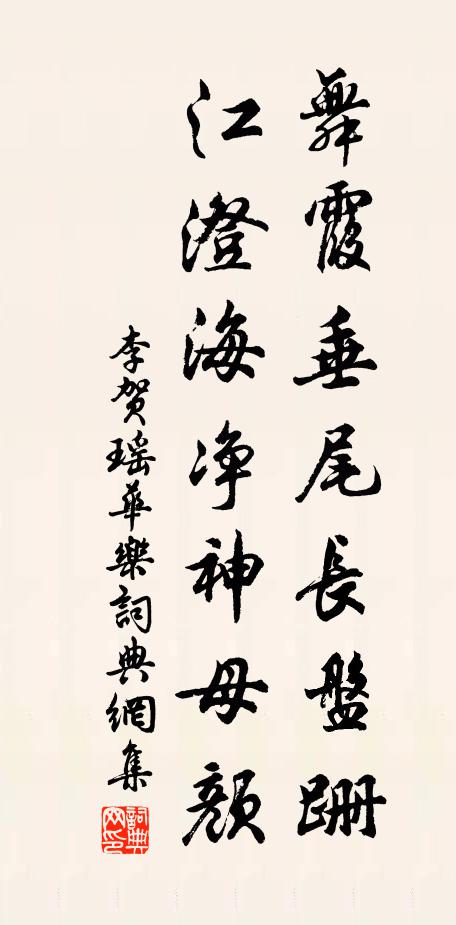 舞霞垂尾長盤跚
江澄海净神母顔
李贺瑶華樂詞典網集
詞典網印